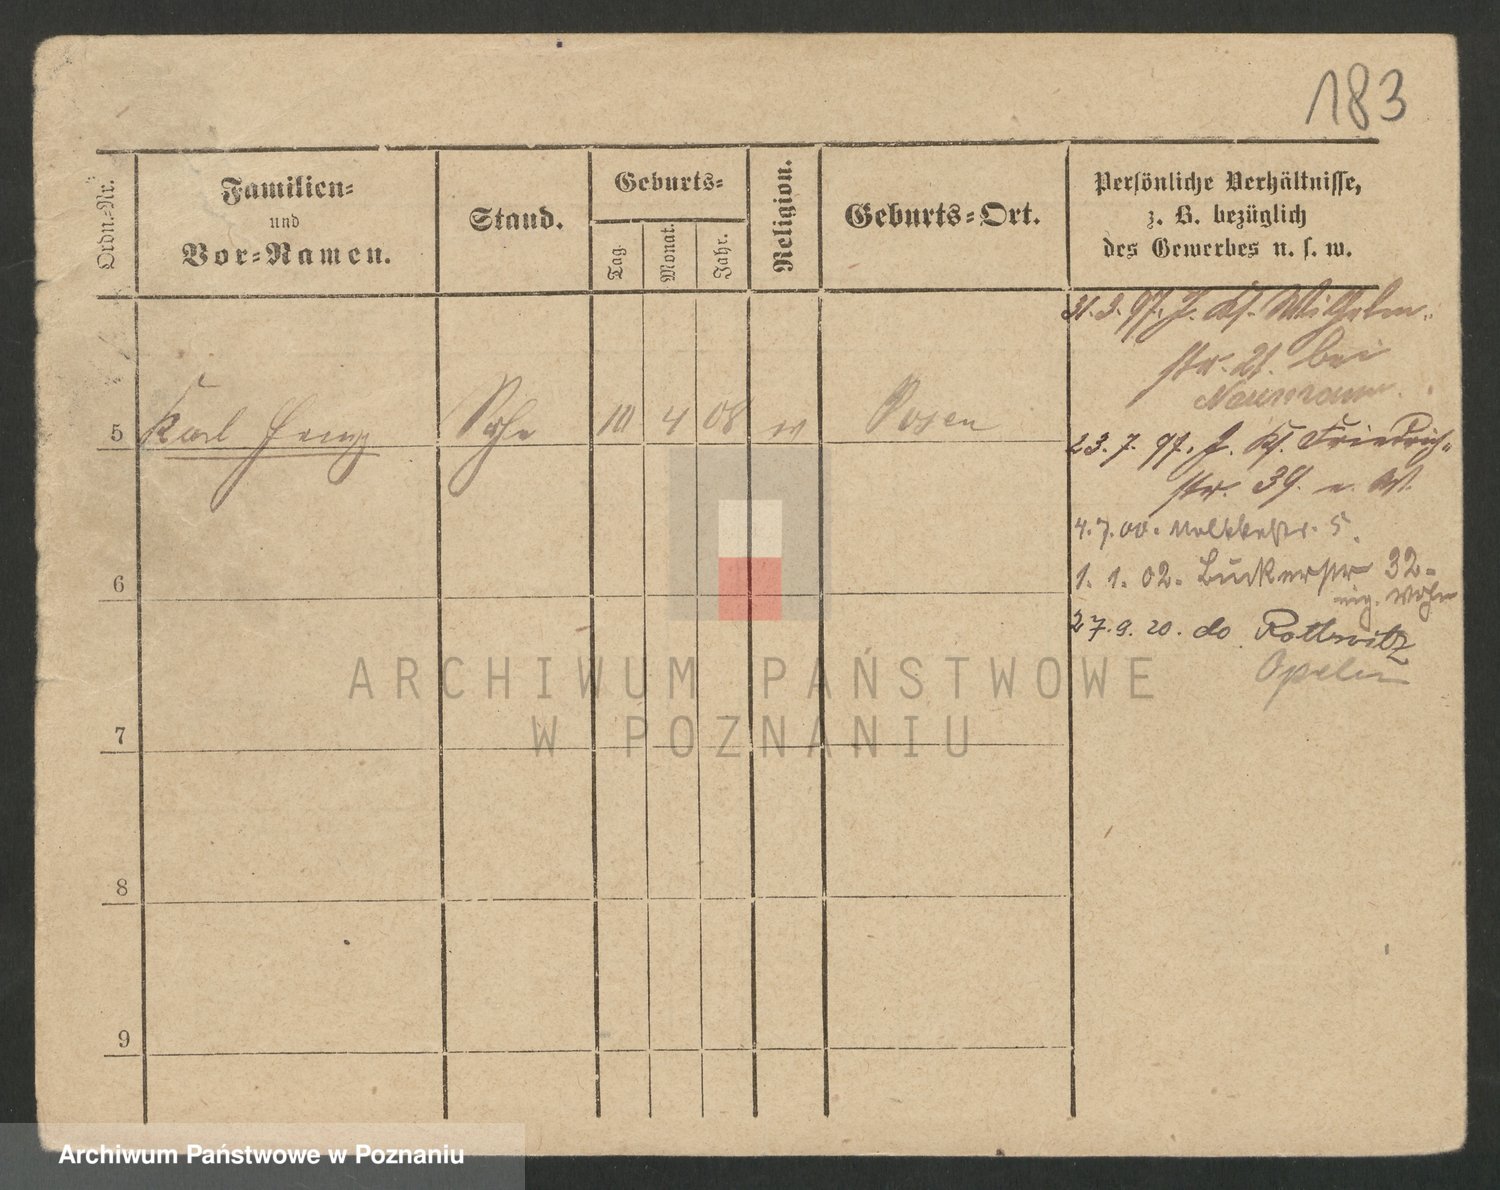 183
Ordn.-Nr.
Familien-
und
Vor-Namen.
Stand.
Geburts-
Tag.
Monat.
Jahr.
Religion.
Geburts-Ort.
Persönliche Verhältnisse,
z. B. bezüglich
des Gewerbes u. s. w.
31. 3. 97. Wilhelm-
str. 21. bei
Naumann.
5 Karl 10 4 08 Posen
23. 7. 97. Friedrich-
str. 39.
6
4. 7. 00. Moltkestr. 5.
1. 1. 02. Bukerstr 32-
27. 9. 20. do Rottwitz
Opeln
ARCHIWUM PAŃSTWOWE
W POZNANIU
7
8
9
Archiwum Państwowe w Poznaniu